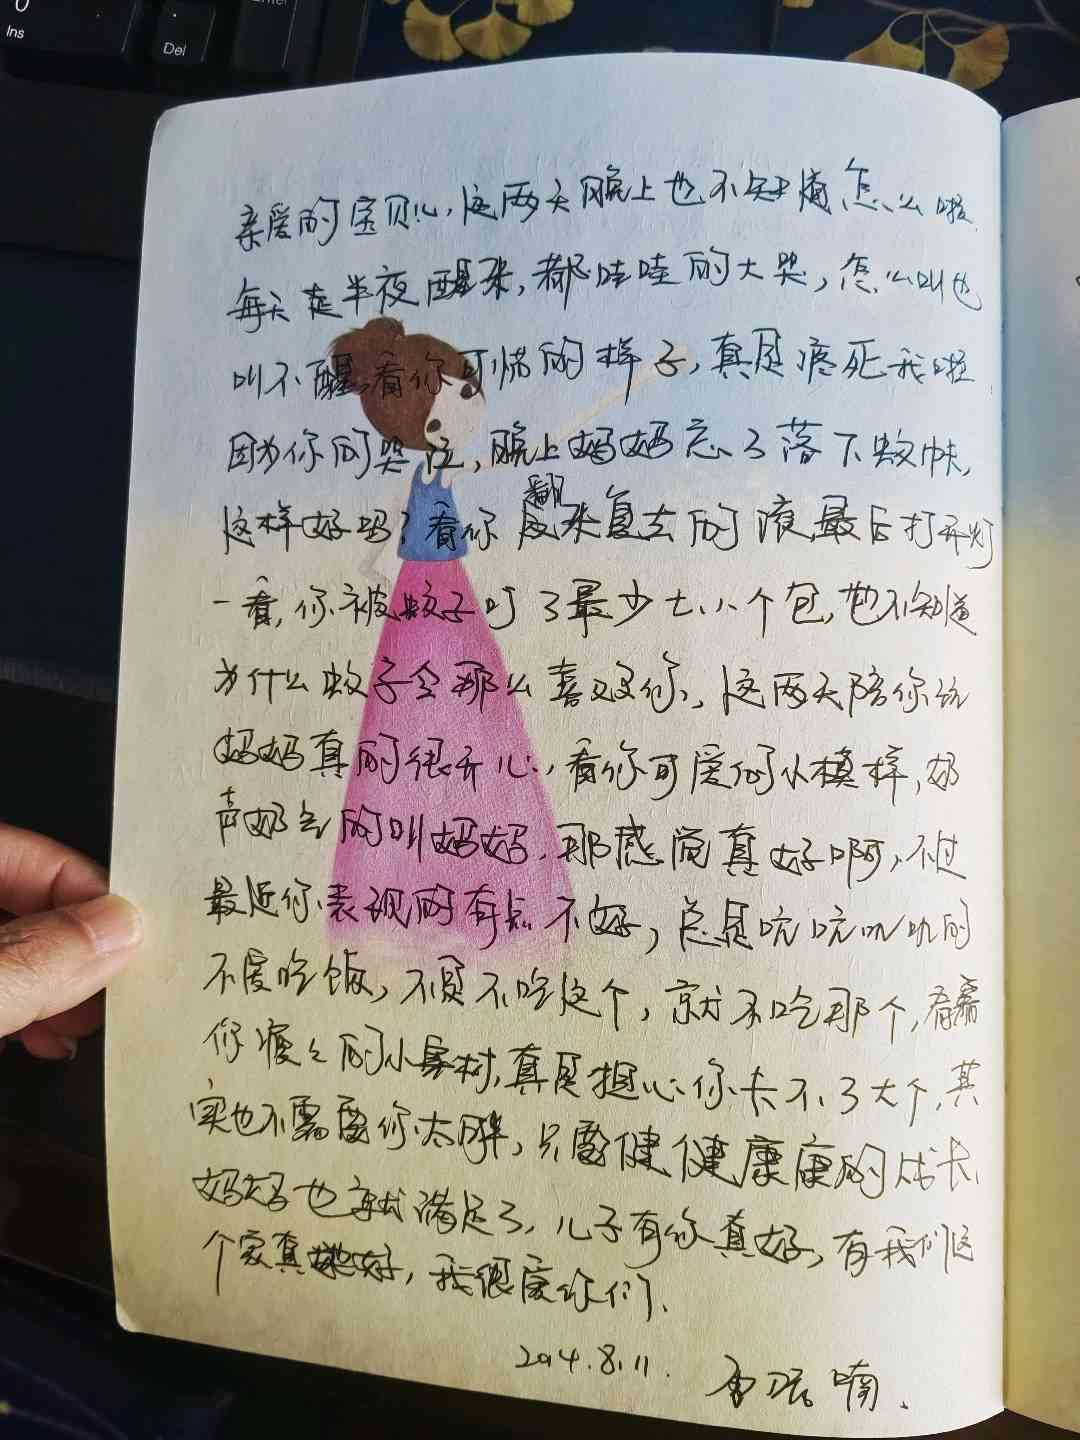 0
Ins
Del
Enter
亲爱的宝贝儿,这两天晚上也不知道怎么啦
每天是半夜醒来,都哇哇的大哭,怎么叫也
叫不醒,看你可惜的样子,真是疼死我啦
因为你的哭泣,晚上妈妈忘了落下蚊帐,
这样好吗?看你翻来复去的滚,最后打开灯
一看,你被蚊子叮了最少七、八个包,也不知道
为什么蚊子会那么喜欢你,这两天陪你玩
妈妈真的很开心,看你可爱的小模样,奶
声奶气的叫妈妈,那感觉真好啊,不过
最近你表现的有点不好,总是吭吭叽叽的
不爱吃饭,不是不吃这个,就不吃那个,看着
你瘦瘦的小身材,真是担心你长不了大个,其
实也不需要你太胖,只要健健康康的成长,
妈妈也就满足了,儿子有你真好,有我们这
个家真好,我很爱你们.
2014.8.11.